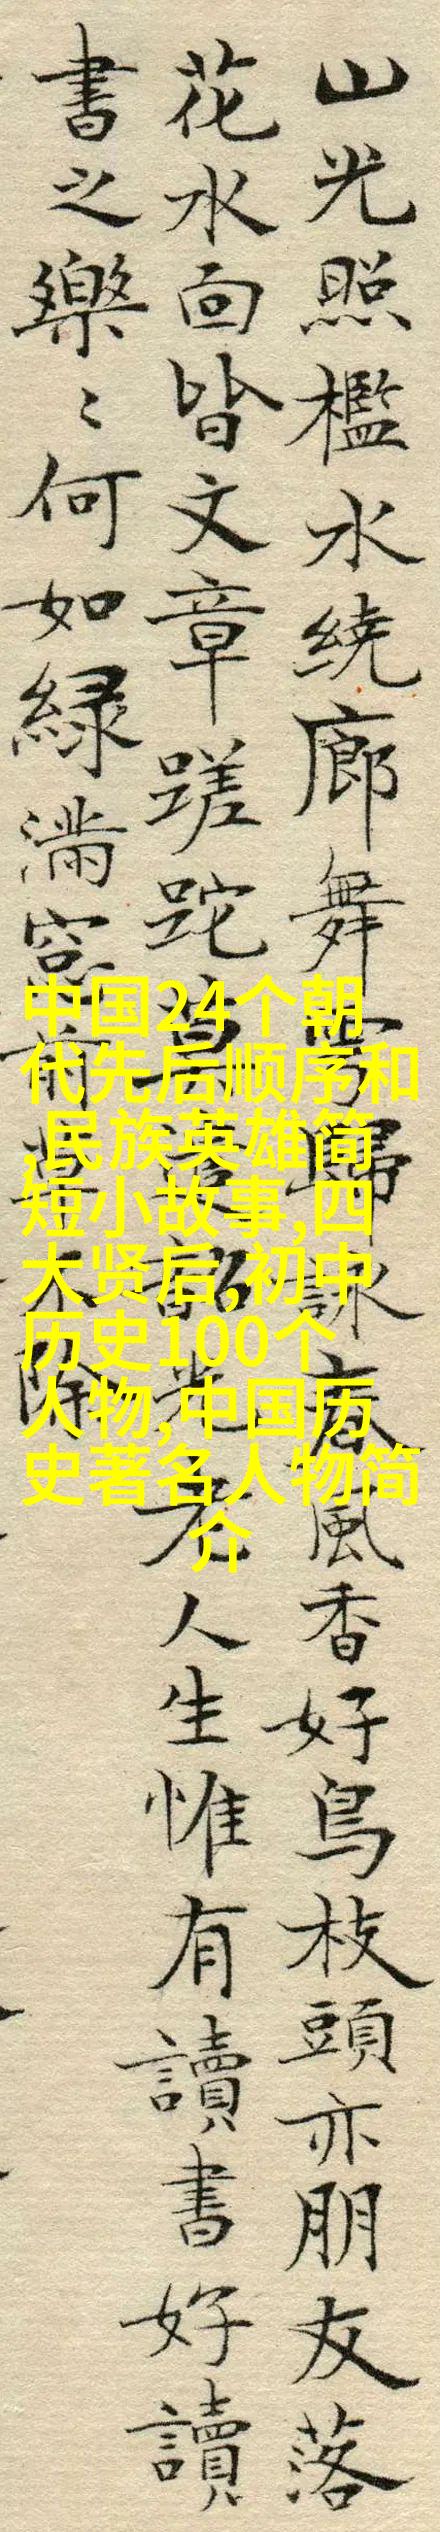 山光照檻水繞廊舞雩歸詠春風香好鳥枝頭亦朋友落
花水面皆文章蹉跎莫遣韶光老人生惟有讀書好讀
書之樂〻何如綠滿窓前草不除
中国24个朝
代先后顺序和
,民族英雄简
短小故事,四
大贤后,初中
历史100个
人物,中国历
史著名人物简
介